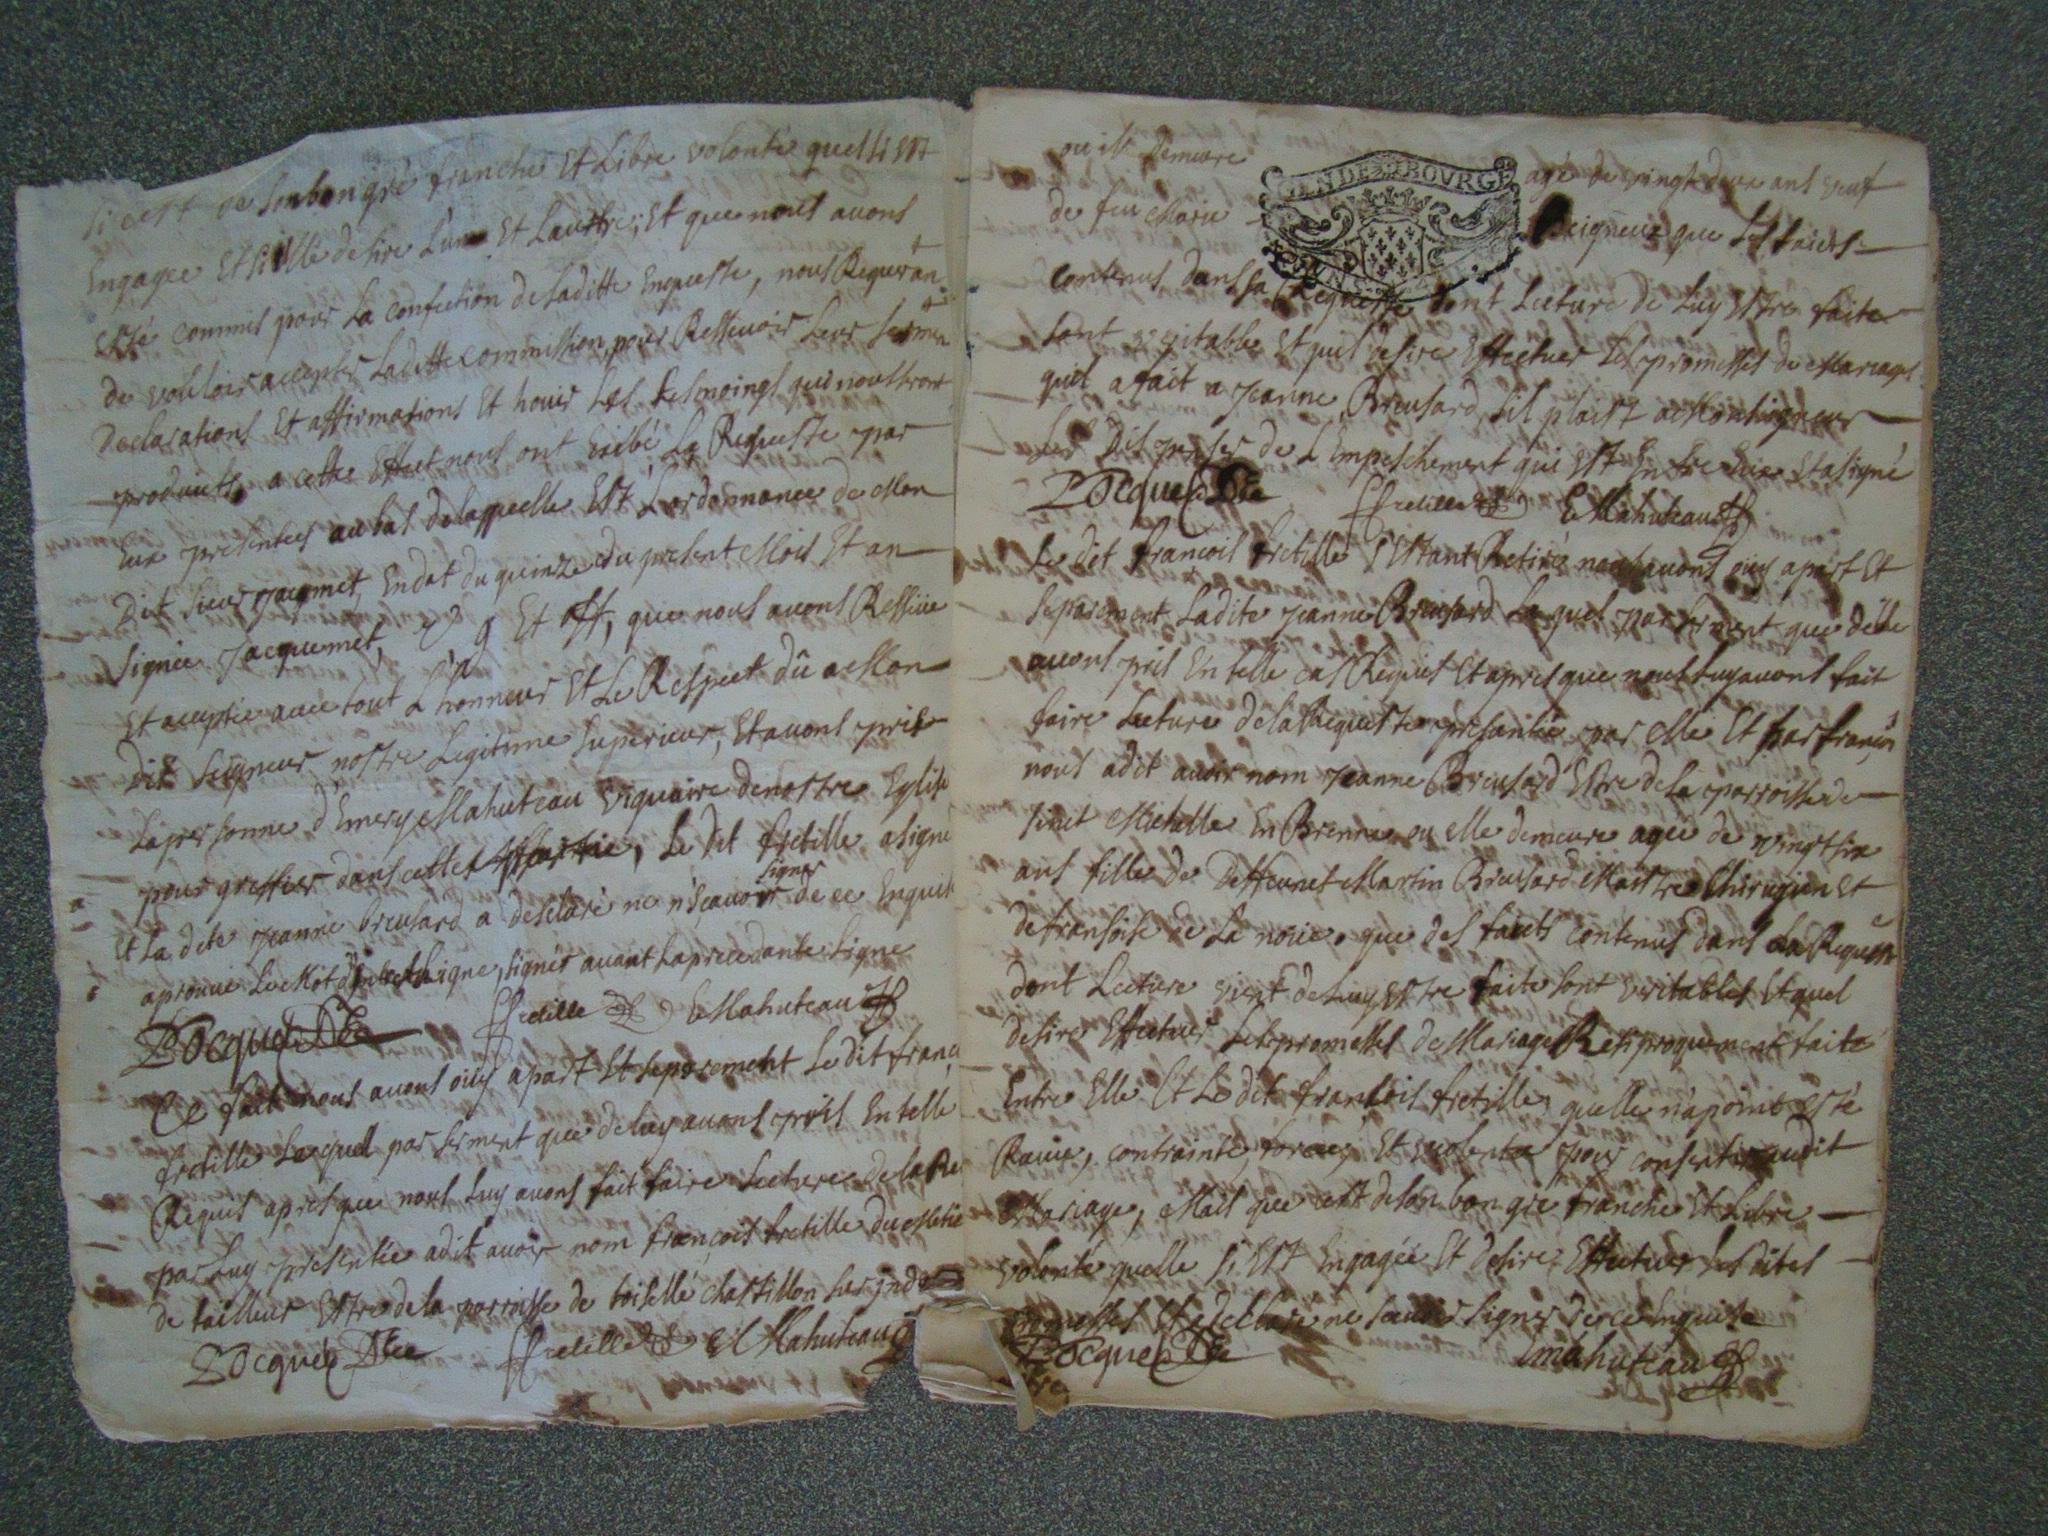 si cest de son bon gré franche Et Libre volonté quelle si Est
Engagee Et si Elle desire L'un Et Lauttre; Et que nous auons
Esté commis pour La confection de Laditte Enqueste, nous Requeran
de vouloir accepter Laditte commission, pour Resseuoir Leur sermen
declarations Et affirmations Et houir Les tesmoings qui nous seront
produits, a cette Effect nous ont Exibé La Requeste par
Eux presentees au bas de laquelle Est L'ordonnance de Mon
Dit sieur jacquemet, En dat du quinze du present Mois Et an
signée Jacquemet, Et off, que nous auons Ressüe
Et aceptée auec tout L'honneur Et Le Respect dû a Mon
Dit Seigneur nostre Legitime superieur, Et auons pris
La personne d'Emery Mahuteau viquaire de nostre Eglise
pour greffier dans cette partie, Le dit fretille a signé
signer
Et La dite Jeanne breusard a desclaré ne n'scauoir de ce Enquis
aprouué Le Mot d'interligne, signer auant La precedante Ligne
Pocquet Fretille E Mahuteau
Ce fait nous auons oüy apart Et separement Le dit franc
fretille Lequel par serment que de luy auons pris En telle
Requis apres que nous Luy auons fait faire Lecture de la Re
par Luy presentée a dit auoir nom françois fretille du Metie
de tailleur Estre de la parroisse de toiselle chastillon sur jndre
Pocquet Fretille E Mahuteau
ou il demeure agé de vingt deux ans veuf
GEN DE BOVRGE
de feu Marie Seigneux que Les faicts
contenus dans sa Requeste dont Lecture de Luy Estre faite
sont veritable Et quil desire Effectuer Les promesses de Mariage
quil a fait a Jeanne Breusard sil plaist a Monseigneur
Les Dispenser de L'Empeschement qui Est Entre Eux Et a signé
Pocquet Fretille E Mahuteau
Le Dit françois fretille s'Estant Retiré nous auons oüy apart Et
separement Ladite Jeanne Breusard Laquel par serment que delle
auons pris En telle cas Requis Et apres que nous Luy auons fait
faire Lecture de la Requeste presantée par elle Et par francois
nous a dit auoir nom Jeanne Breusard Estre de la parroisse de
sinct Michelle En Brenne ou elle demeure agée de vingt six
ans fille de Deffeunct Martin Breusard Maistre Chirugien Et
de fransoise de La noüe, que des faicts contenus dans La Requeste
dont Lecture vient de Luy Estre faite sont veritables Et quel
desire Effectuer Les promesses de Mariage Resiproquement faite
Entre Elle Et Le dit francois fretille, quelle n'a point Esté
Rauie, contrainte, forcee, Et violentee pour consentir audit
Mariage, Mais que cest de son bon gré franche Et Libre
volonté quelle si Est Engagée Et desire Effectuer Les dites
promesses Et a declaré ne scauoir signer de ce Enquise
Pocquet E Mahuteau